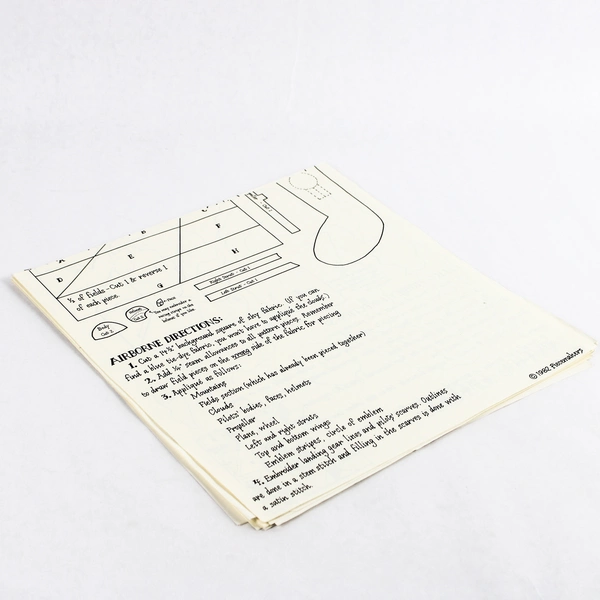 A B C
D E F
G H
½ of fields - Cut 1 & reverse 1
of each piece.
Body
Cut 2
Wheel
Cut 1
Face
Right Strut - Cut 1
Left Strut - Cut 1
AIRBORNE DIRECTIONS:
1. Cut a 14½" background square of sky fabric. (If you can
find a blue tie-dye fabric, you won't have to applique the clouds.)
2. Add ¼" seam allowances to all pattern pieces. Remember
to draw field pieces on the wrong side of the fabric for piecing
3. Applique as follows:
Mountains
Fields section (which has already been pieced together)
Clouds
Pilots' bodies, faces, helmets
Propeller
Plane, wheel
Left and right struts
Top and bottom wings
Emblem stripes, circle of emblem
4. Embroider landing gear lines and pilots' scarves. Outlines
are done in a stem stitch and filling in the scarves is done with
a satin stitch.
© 1982 Pacemakers